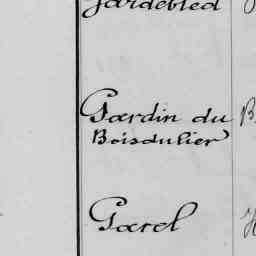 Gardebled
Gardin du
Boisdulier
Garel